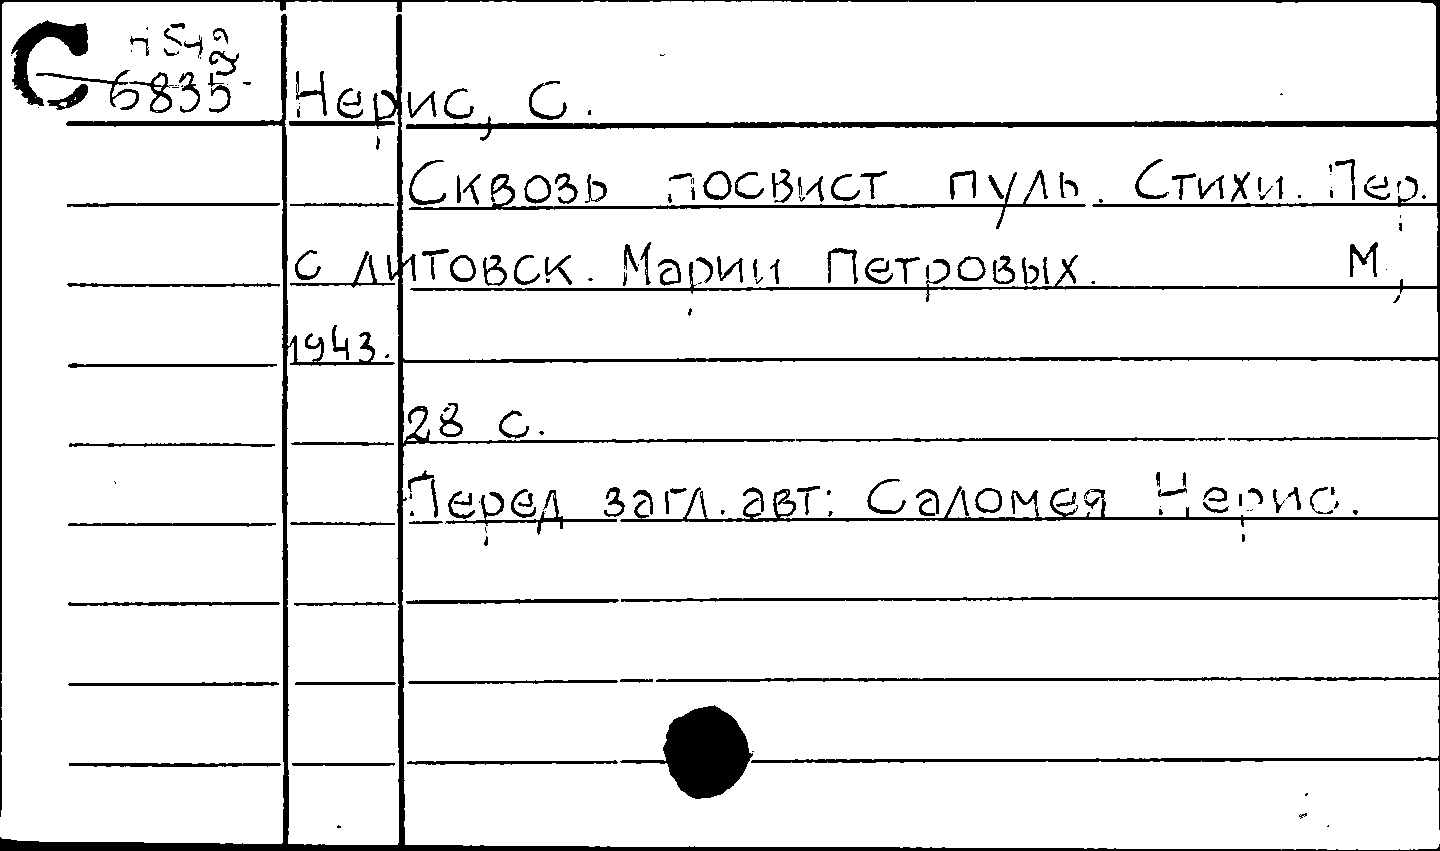 С
6835
Нерис, С.
Сквозь посвист пуль. Стихи. Пер.
с литовск. Марии Петровых. М.,
1943.
28 с.
Перед загл. авт: Саломея Нерис.